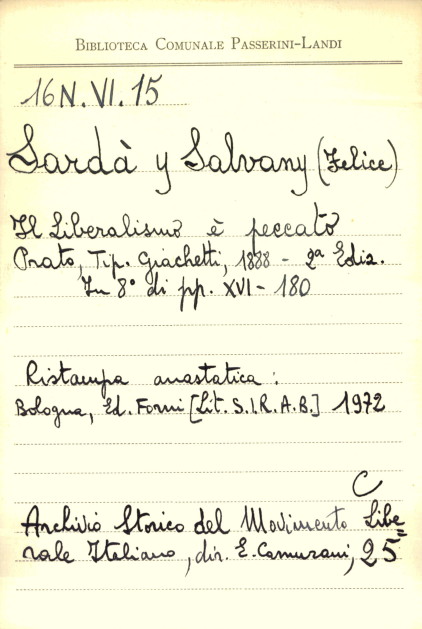 BIBLIOTECA COMUNALE PASSERINI-LANDI
16 N. VI. 15
Sardà y Salvany (Felice)
Il Liberalismo è peccato
Prato, Tip. Giachetti, 1888 - 2ª Ediz.
In 8° di pp. XVI - 180
Ristampa anastatica :
Bologna, Ed. Forni [Lit. S.I.R.A.B.] 1972
C
Archivio Storico del Movimento Libe=
rale Italiano, dir. E. Camurani, 25